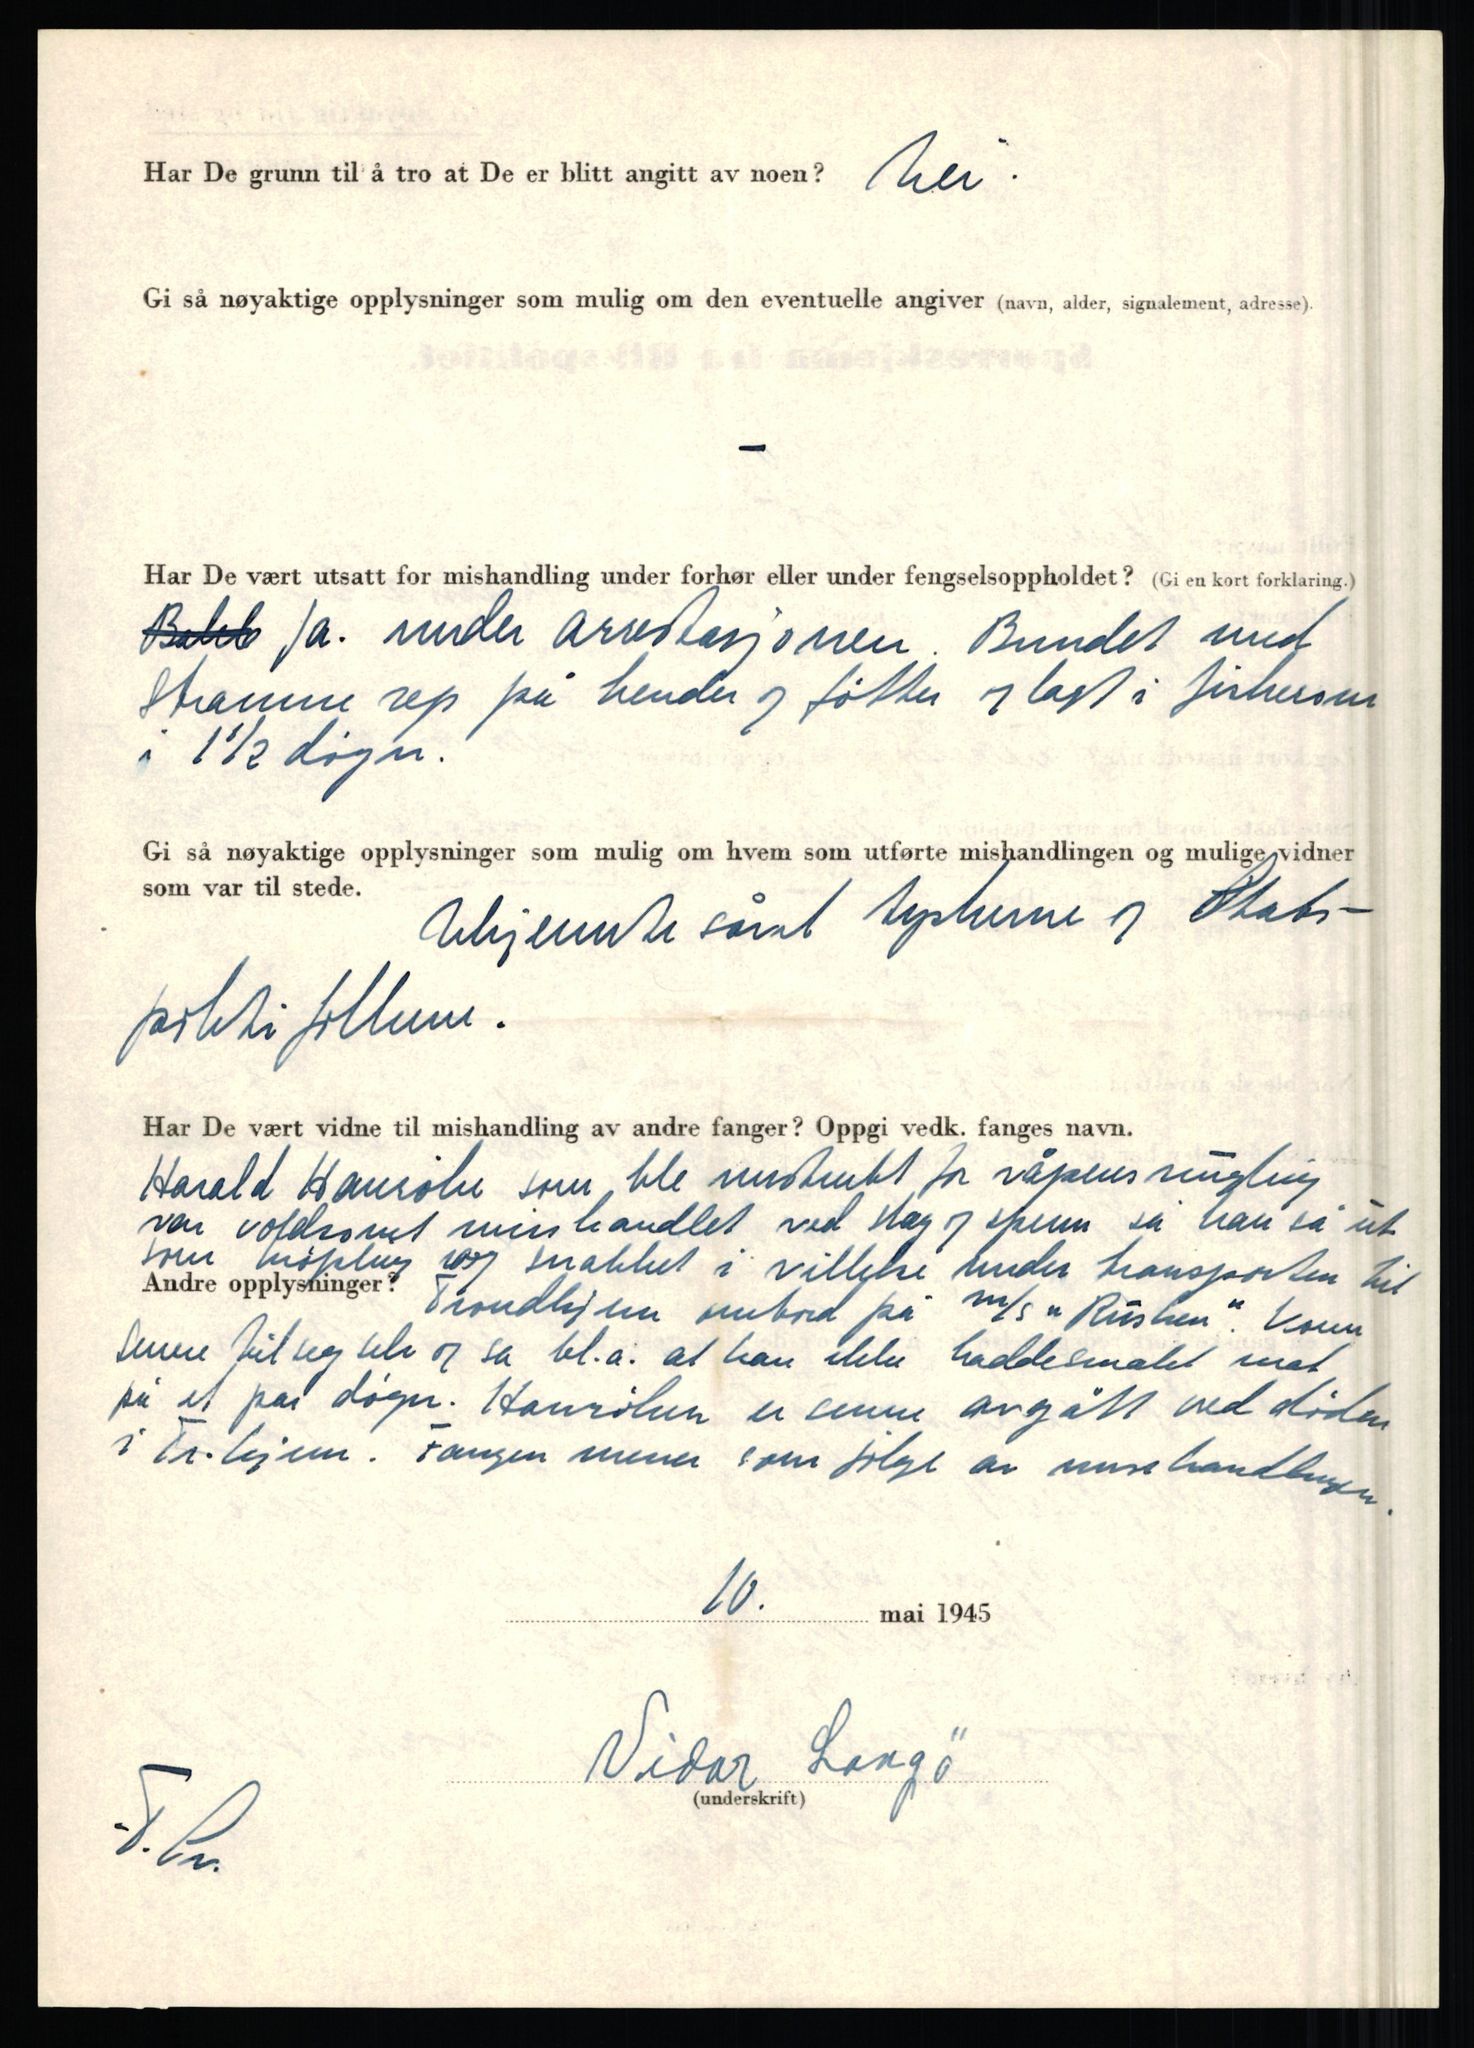 Har De grunn til å tro at De er blitt angitt av noen? Nei.
Gi så nøyaktige opplysninger som mulig om den eventuelle angiver (navn, alder, signalement, adresse).
–
Har De vært utsatt for mishandling under forhør eller under fengselsoppholdet? (Gi en kort forklaring.)
Ja. under arrestasjonen. Bundet med
stramme rep på hender og føtter og lagt i
i 1 1/2 døgn.
Gi så nøyaktige opplysninger som mulig om hvem som utførte mishandlingen og mulige vidner
som var til stede.
Ukjente såvel tyskerne og Stats-
politifolkene.
Har De vært vidne til mishandling av andre fanger? Oppgi vedk. fanges navn.
Harald som ble mistenkt for våpensmugling
var voldsomt mishandlet ved slag og spenn så han så ut
som og snakket i villelse under transporten til
Andre opplysninger?
Trondhjem ombord på m/s "Rüshen". Kom
senere til seg selv og sa bl.a. at han ikke hadde smakt mat
på et par døgn. er senere avgått ved døden
i Tr.hjem. Fangen mener som følge av mishandlingen.
10. mai 1945
Vidar Langö
(underskrift)